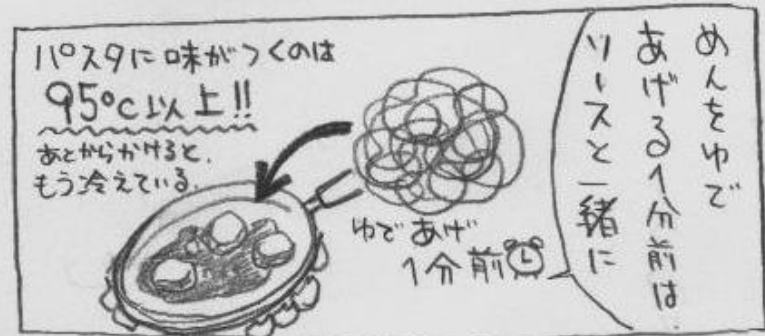 めんをゆで
あげる1分前は
ソースと一緒に
パスタに味がつくのは
95℃以上!!
あとからかけると、
もう冷えている。
ゆであげ
1分前